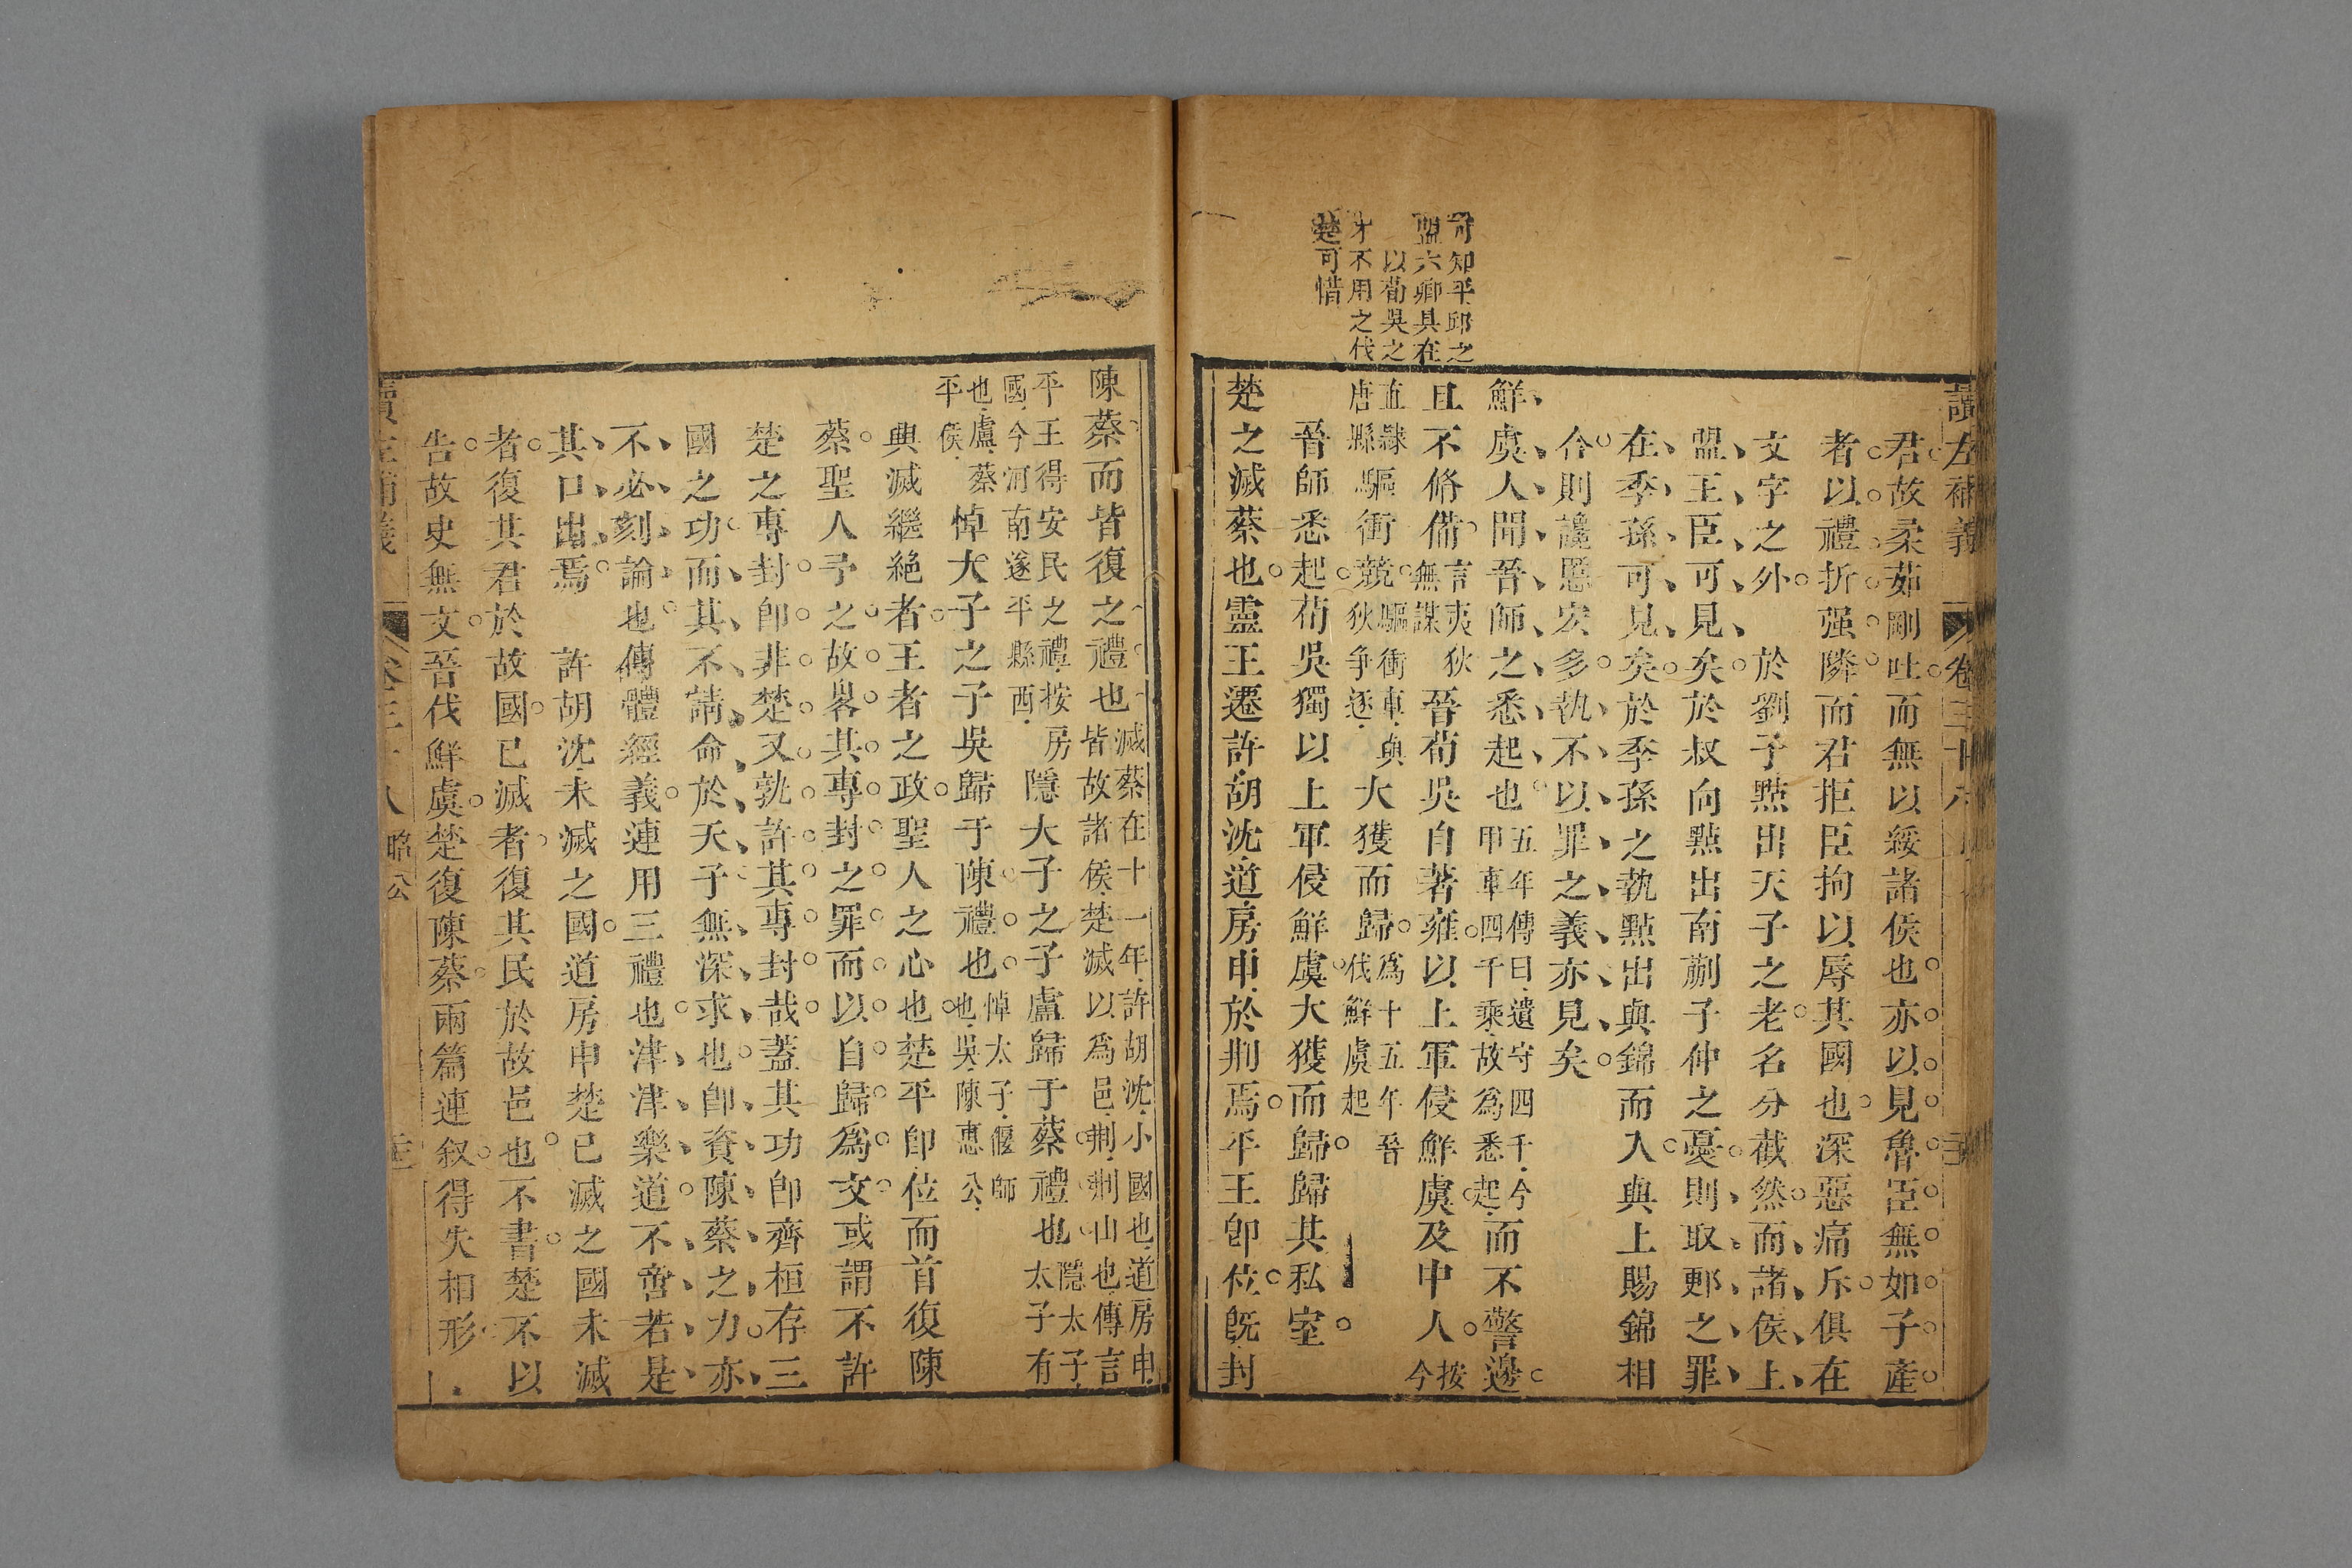 讀左補義 卷三十八
君故柔茹剛吐而無以綏諸侯也亦以見魯臣無如子產
者以禮折强隣而君拒臣拘以辱其國也深惡痛斥俱在
文字之外 於劉子點出天子之老名分截然而諸侯上
盟王臣可見矣於叔向點出南蒯子仲之憂則取郠之罪
在季孫可見矣於季孫之執點出與錦而入與上賜錦相
合則讒慝宏多執不以罪之義亦見矣
鮮虞人聞晉師之悉起也五年傳曰遺守四千今
甲車四千乘故爲悉起而不警邊
且不脩備言夷狄
無謀晉荀吳自著雍以上軍侵鮮虞及中人按
今
直隸
唐縣驅衝競驅衝車與
狄爭逐大獲而歸爲十五年晉
伐鮮虞起
晉師悉起荀吳獨以上軍侵鮮虞大獲而歸歸其私室
楚之滅蔡也靈王遷許胡沈道房申於荆焉平王卽位旣封
可知平邱之
盟六卿具在
以荀吳之
才不用之伐
楚可惜
陳蔡而皆復之禮也滅蔡在十一年許胡沈小國也道房申
皆故諸侯楚滅以爲邑荆荆山也傳言
平王得安民之禮按房
國今河南遂平縣西隱大子之子廬歸于蔡禮也隱太子
太子有
也廬蔡
平侯悼大子之子吳歸于陳禮也悼太子偃師
也吳陳惠公
興滅繼絕者王者之政聖人之心也楚平卽位而首復陳
蔡聖人予之故畧其專封之罪而以自歸爲文或謂不許
楚之專封卽非楚又孰許其專封哉蓋其功卽齊桓存三
國之功而其不請命於天子無深求也卽資陳蔡之力亦
不必刻論也傳體經義連用三禮也津津樂道不啻若是
其口出焉 許胡沈未滅之國道房申楚已滅之國未滅
者復其君於故國已滅者復其民於故邑也不書楚不以
告故史無文晉伐鮮虞楚復陳蔡兩篇連叙得失相形